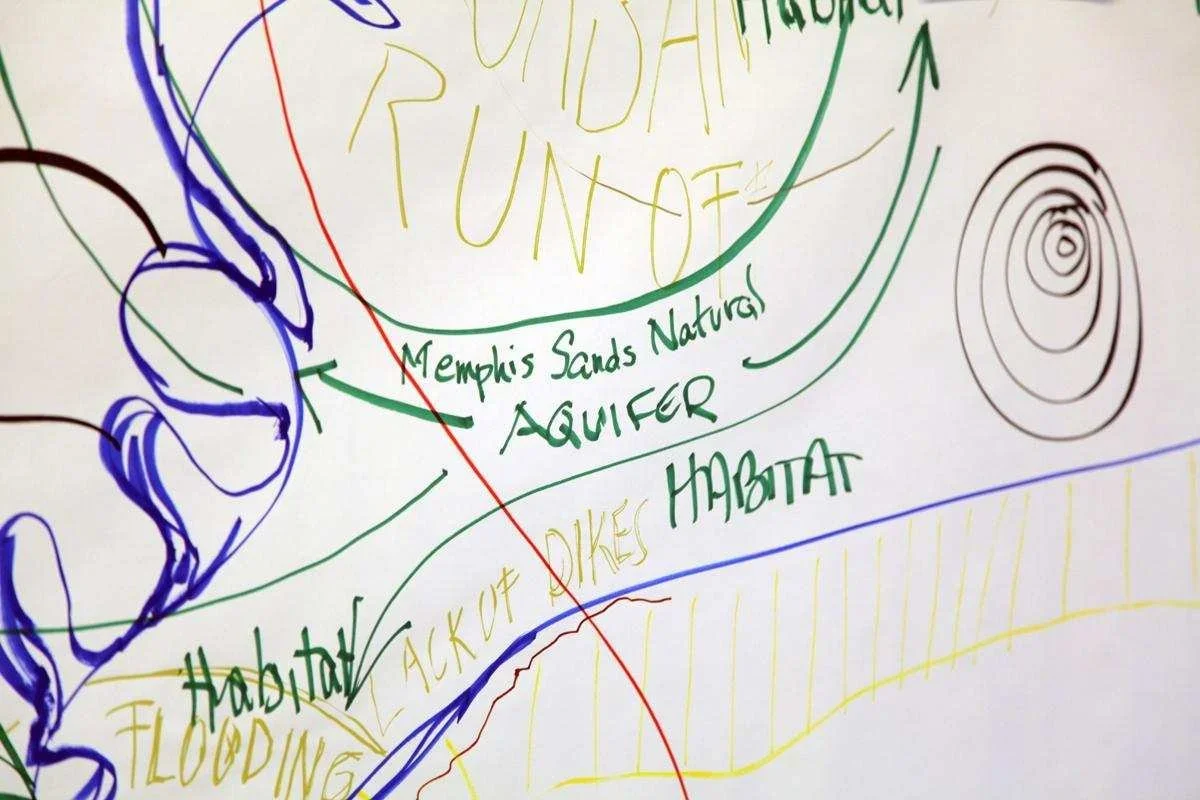 Habitat
RUN OF
Memphis Sands Natural
AQUIFER
HABITAT
LACK OF DIKES
Habitat
FLOODING